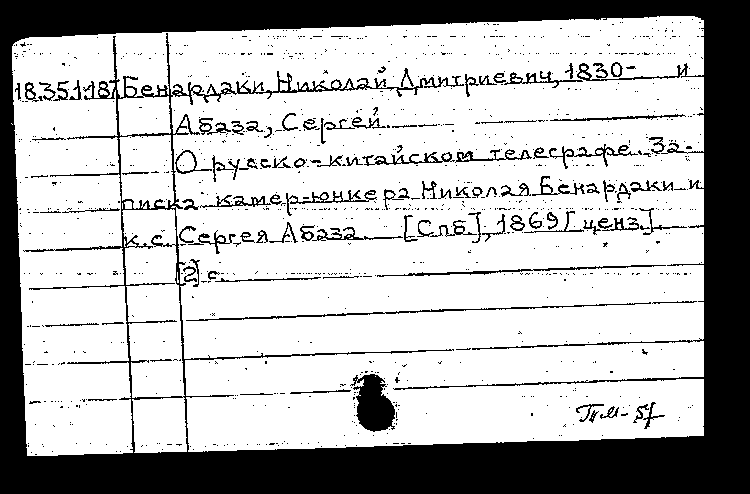 18.351.187 Бенардаки, Николай Дмитриевич, 1830- и
Абаза, Сергей
О русско-китайском телеграфе. За-
писка камер-юнкера Николая Бенардаки и
к.с. Сергея Абаза. [Спб], 1869 [ценз.].
[2] с.